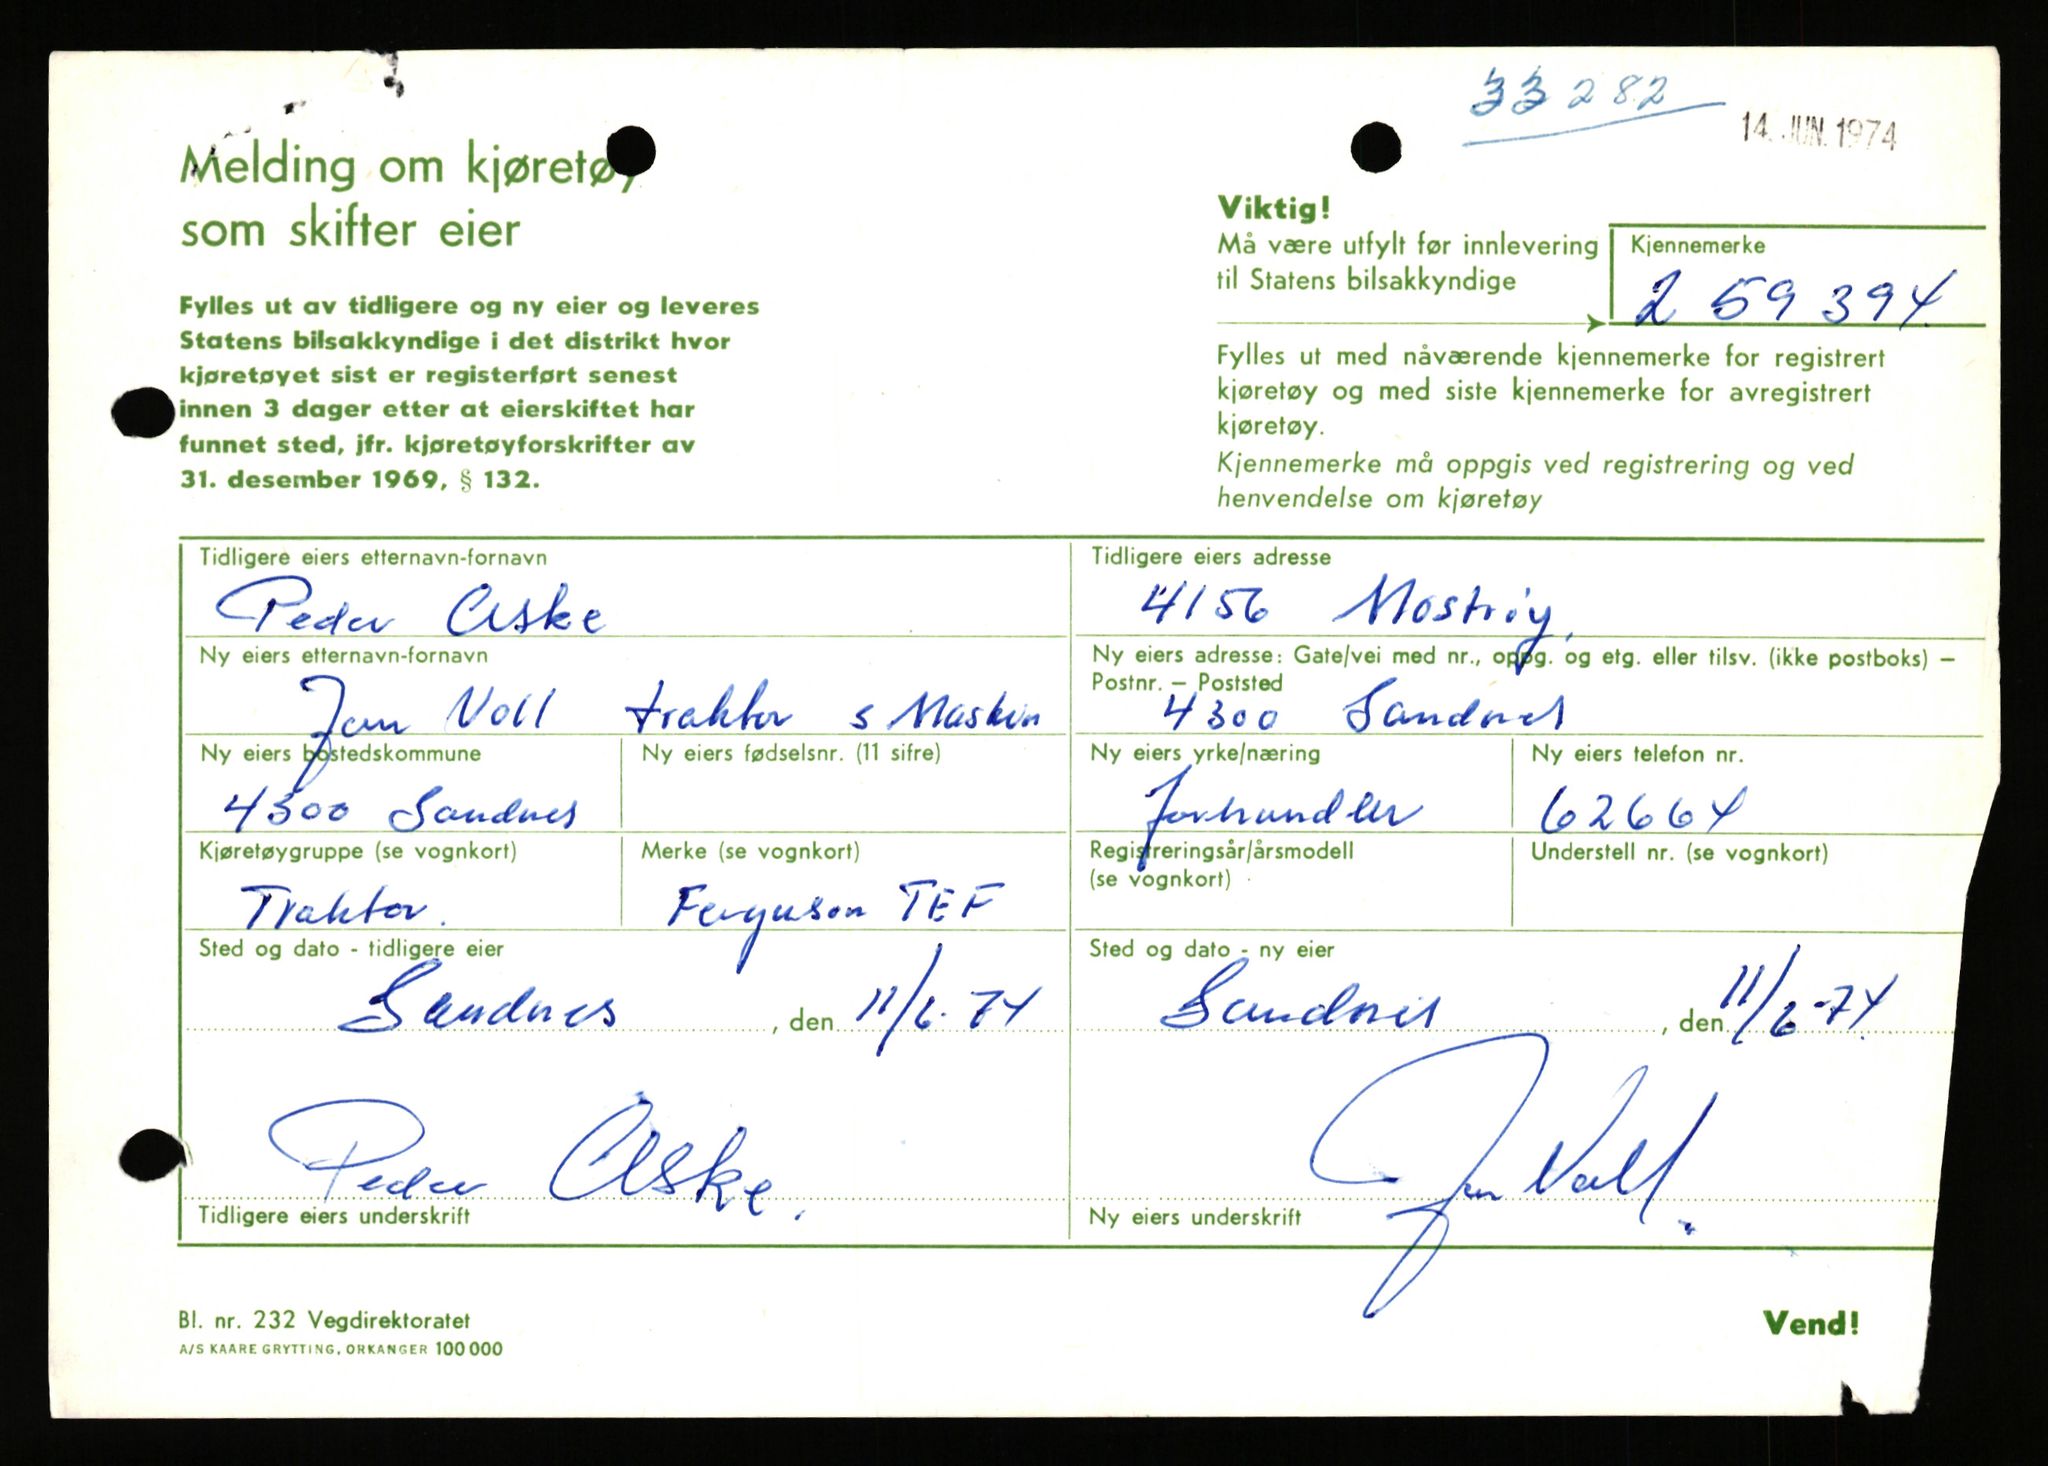 33282
14. JUN. 1974
Melding om kjøretøy
som skifter eier
Fylles ut av tidligere og ny eier og leveres
Statens bilsakkyndige i det distrikt hvor
kjøretøyet sist er registerført senest
innen 3 dager etter at eierskiftet har
funnet sted, jfr. kjøretøyforskrifter av
31. desember 1969, § 132.
Viktig!
Må være utfylt før innlevering
til Statens bilsakkyndige
Kjennemerke
2 59 394
Fylles ut med nåværende kjennemerke for registrert
kjøretøy og med siste kjennemerke for avregistrert
kjøretøy.
Kjennemerke må oppgis ved registrering og ved
henvendelse om kjøretøy
Tidligere eiers etternavn-fornavn
Peder Aske
Tidligere eiers adresse
4156 Mostrøy.
Ny eiers etternavn-fornavn
Jan Voll traktor s Maskin
Ny eiers adresse: Gate/vei med nr., oppg. og etg. eller tilsv. (ikke postboks) –
Postnr. – Poststed
4300 Sandnes
Ny eiers bostedskommune
4300 Sandnes
Ny eiers fødselsnr. (11 sifre)
Ny eiers yrke/næring
forhandler
Ny eiers telefon nr.
62664
Kjøretøygruppe (se vognkort)
Traktor.
Merke (se vognkort)
Ferguson TEF
Registreringsår/årsmodell
(se vognkort)
Understell nr. (se vognkort)
Sted og dato - tidligere eier
Sandnes, den 11/6-74
Sted og dato - ny eier
Sandnes, den 11/6-74.
Peder Aske.
Tidligere eiers underskrift
Jan Voll.
Ny eiers underskrift
Bl. nr. 232 Vegdirektoratet
A/S KAARE GRYTTING, ORKANGER 100 000
Vend!